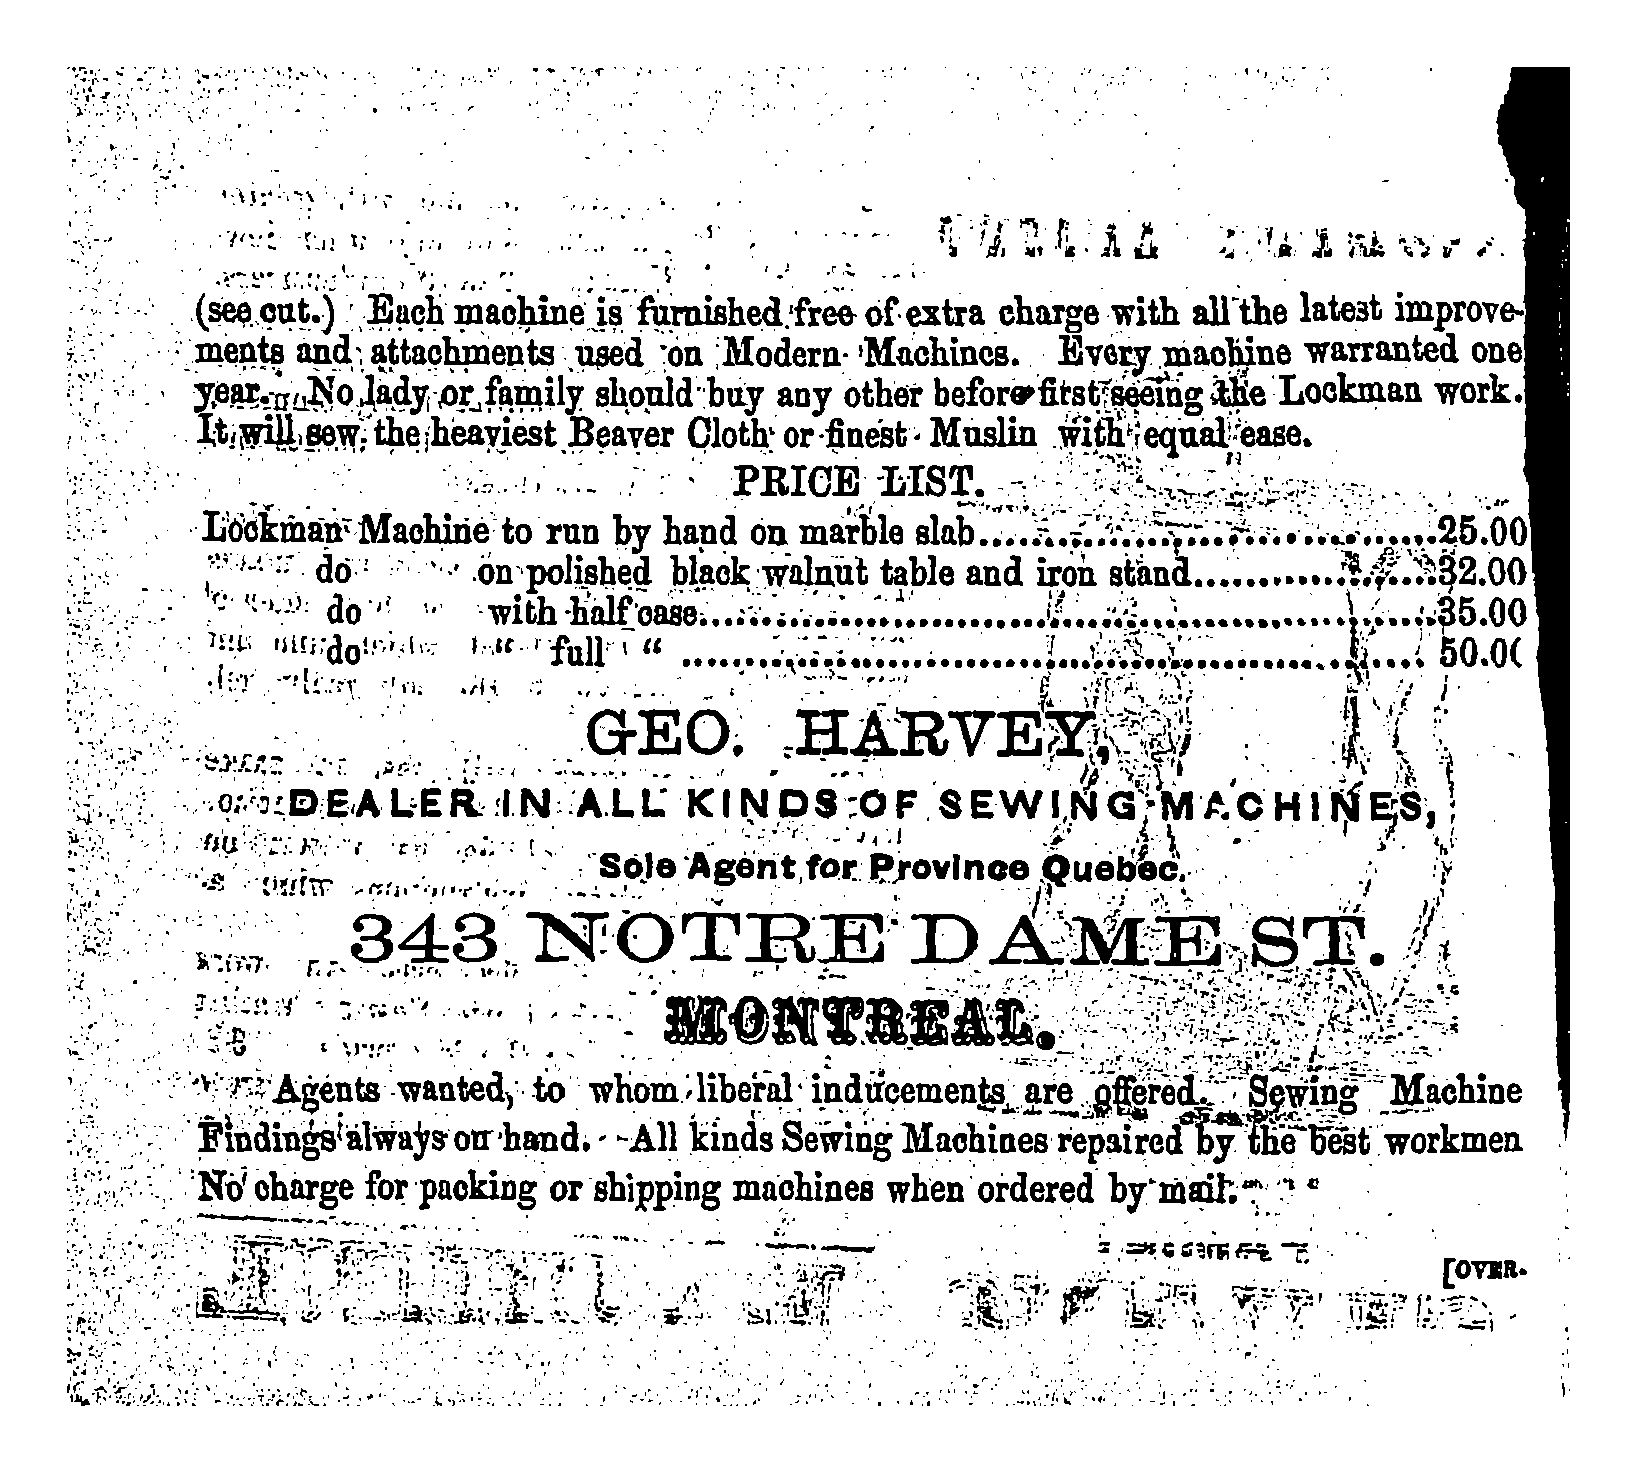 (see cut.) Each machine is furnished free of extra charge with all the latest improve-
ments and attachments used on Modern Machines. Every machine warranted one
year. No lady or family should buy any other before first seeing the Lockman work.
It will sew the heaviest Beaver Cloth or finest Muslin with equal ease.
PRICE LIST.
Lockman Machine to run by hand on marble slab..............................25.00
do on polished black walnut table and iron stand................32.00
do with half case..............................................35.00
do " full " .............................................. 50.0
GEO. HARVEY,
DEALER IN ALL KINDS OF SEWING MACHINES,
Sole Agent for Province Quebec.
343 NOTRE DAME ST.
MONTREAL.
Agents wanted, to whom liberal inducements are offered. Sewing Machine
Findings always on hand. All kinds Sewing Machines repaired by the best workmen
No charge for packing or shipping machines when ordered by mail.
[OVER.